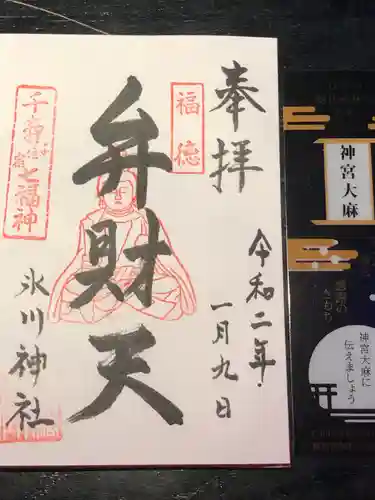 奉拝
令和二年
一月九日
福徳
弁財天
千寿
七福神
氷川神社
神宮大麻
感謝の
きもち
神宮大麻に
伝えましょう